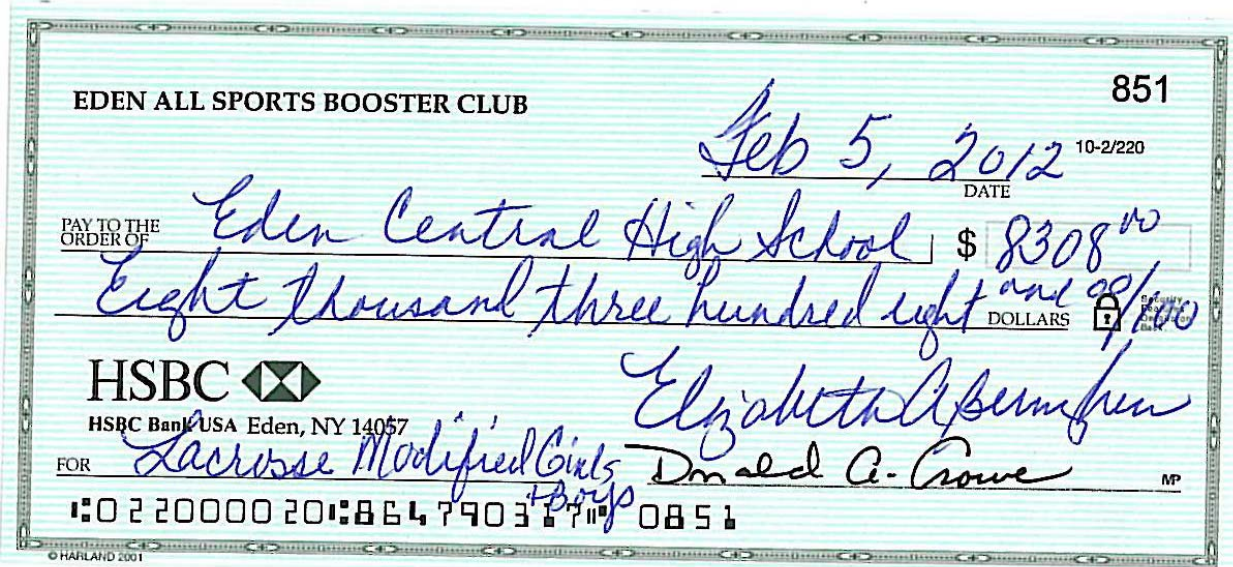 851
EDEN ALL SPORTS BOOSTER CLUB
Feb 5, 2012 10-2/220
DATE
PAY TO THE ORDER OF Eden Central High School $ 8308 00
Eight thousand three hundred eight and 00/100 DOLLARS
HSBC
HSBC Bank USA Eden, NY 14057
Elizabeth A
FOR Lacrosse Modified Girls + Boys Donald A. Crowe MP
⑆022000020⑆864790317⑈ 0851
© HARLAND 2001